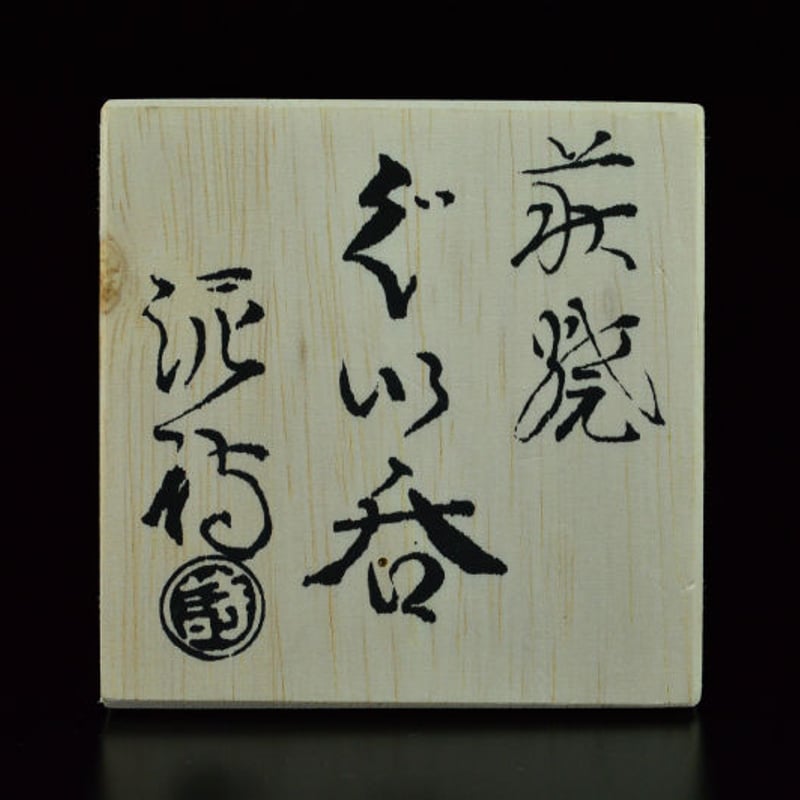 萩焼
ぐい呑
泥詩